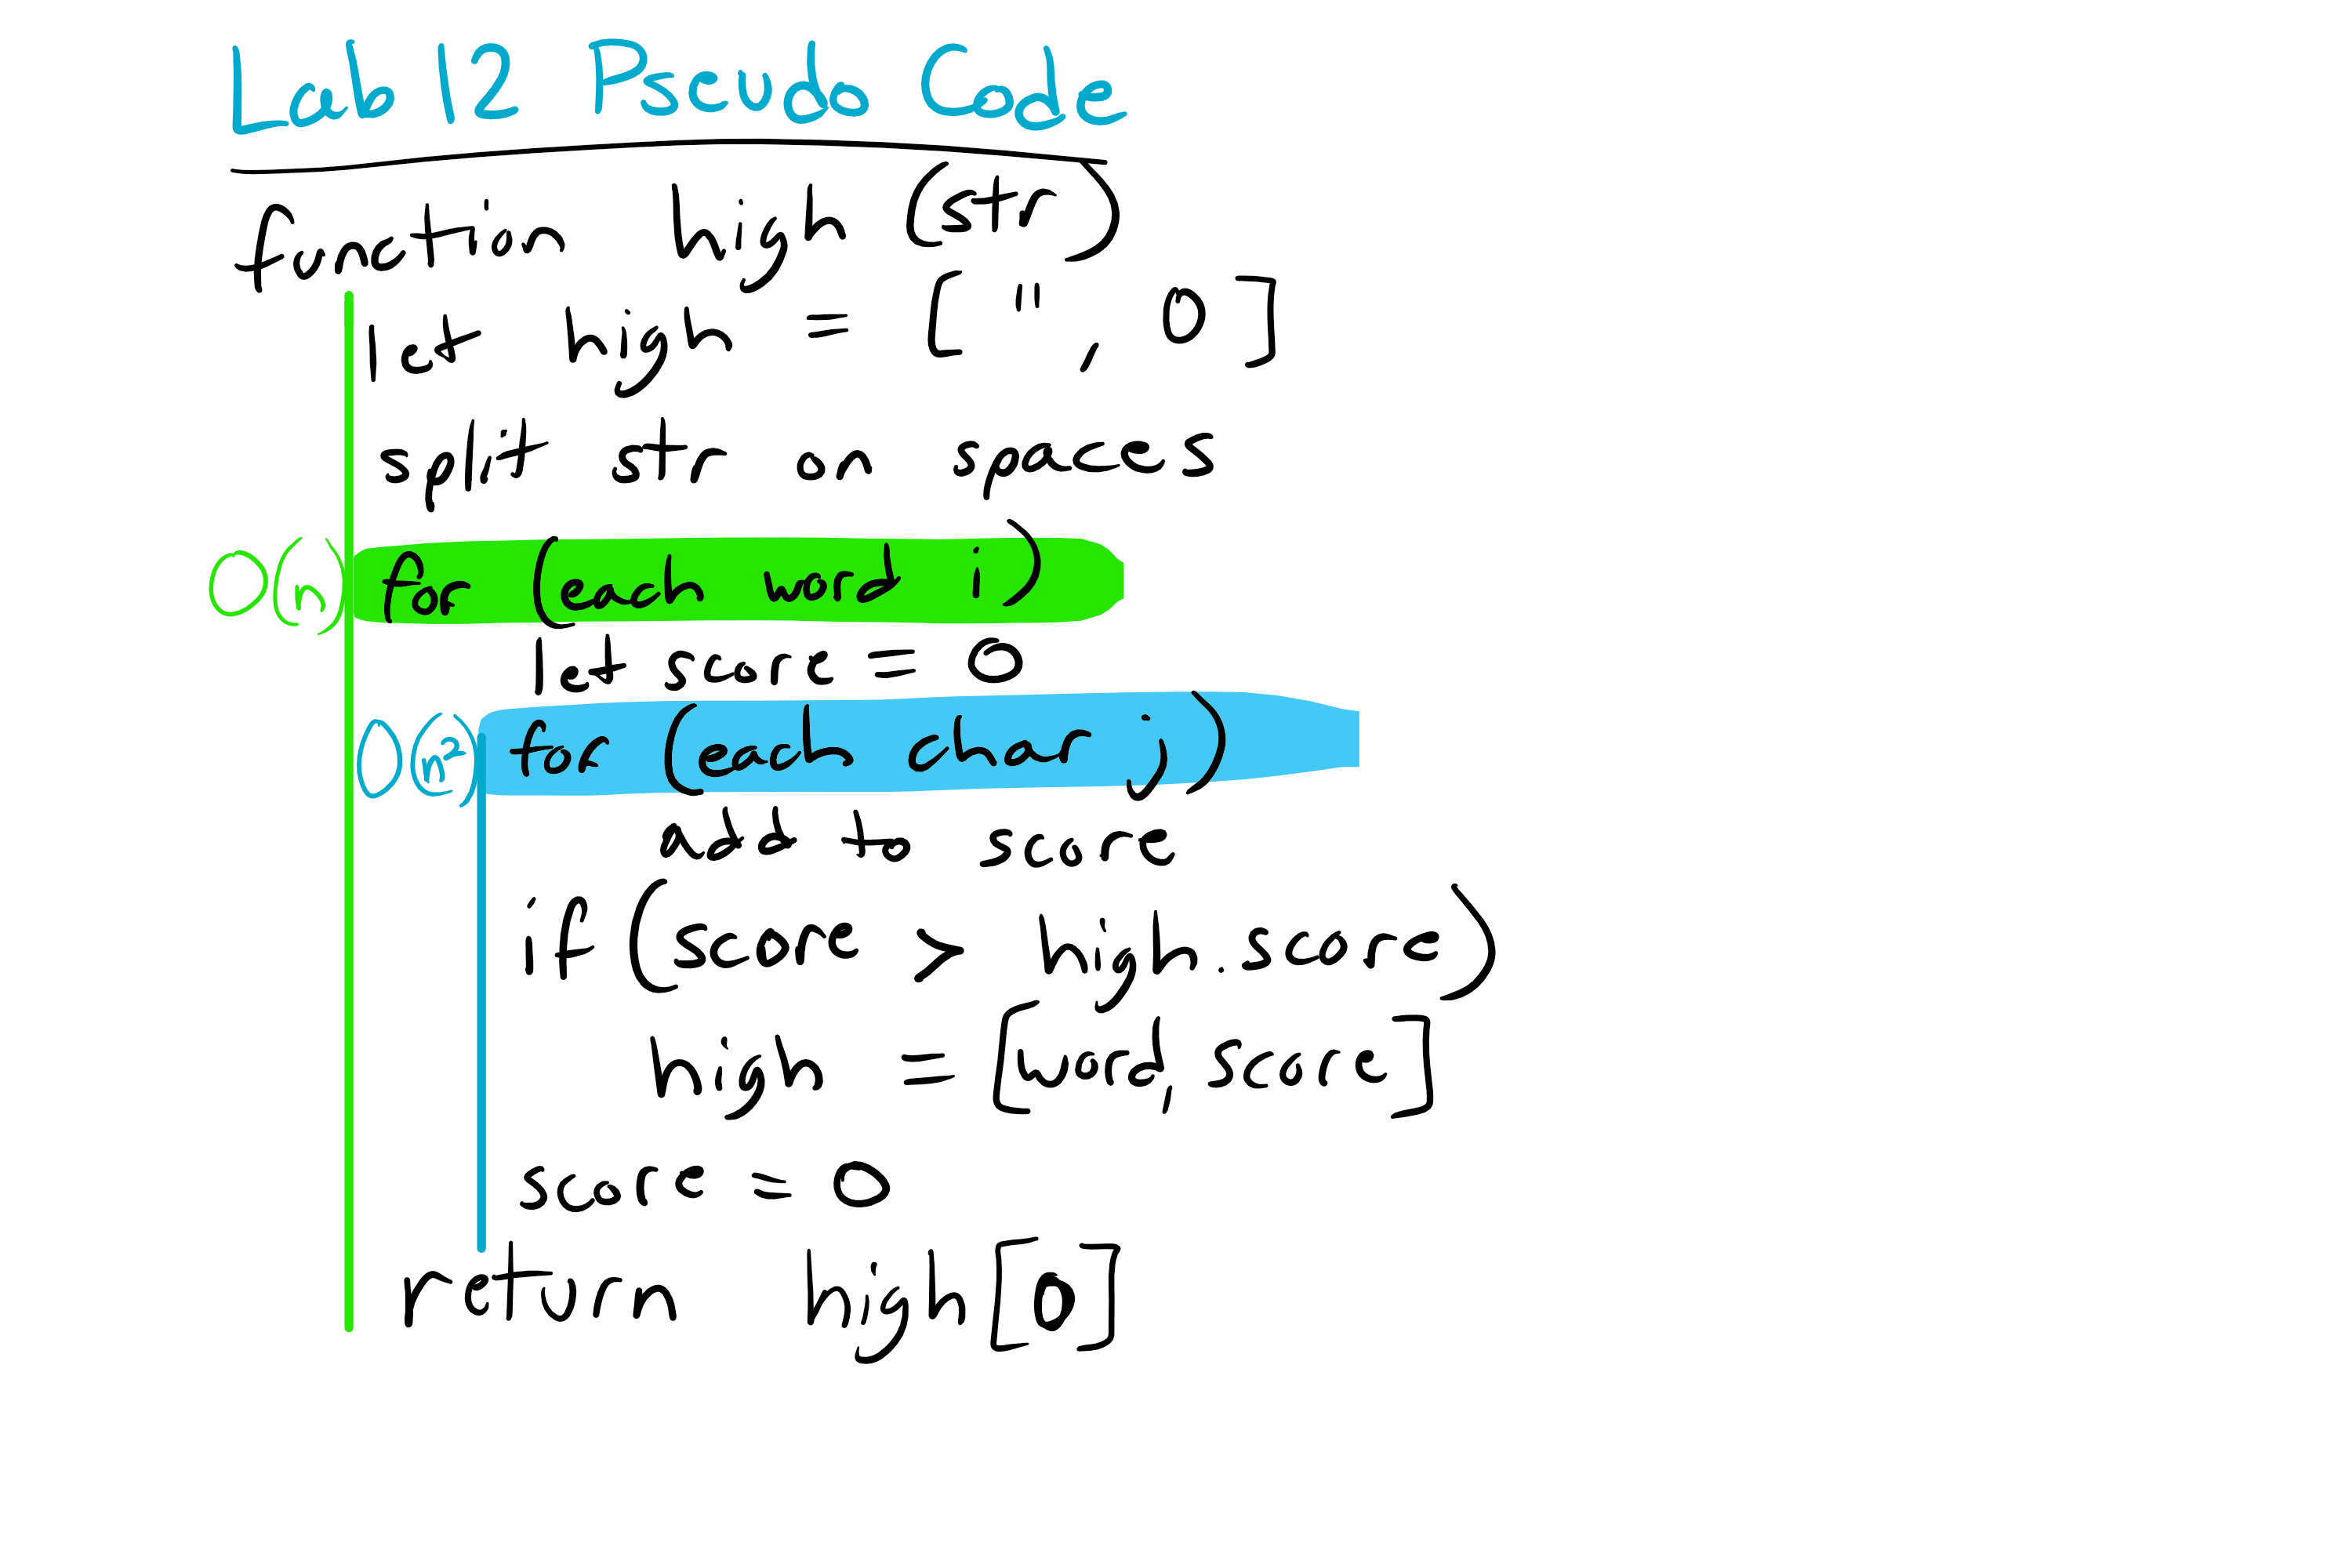 Lab 12 Pseudo Code
function high (str)
let high = [ " , 0 ]
split str on spaces
O(n) for (each word i)
let score = 0
O(n²) for (each char j)
add to score
if (score > high.score)
high = [word, score]
score = 0
return high[0]